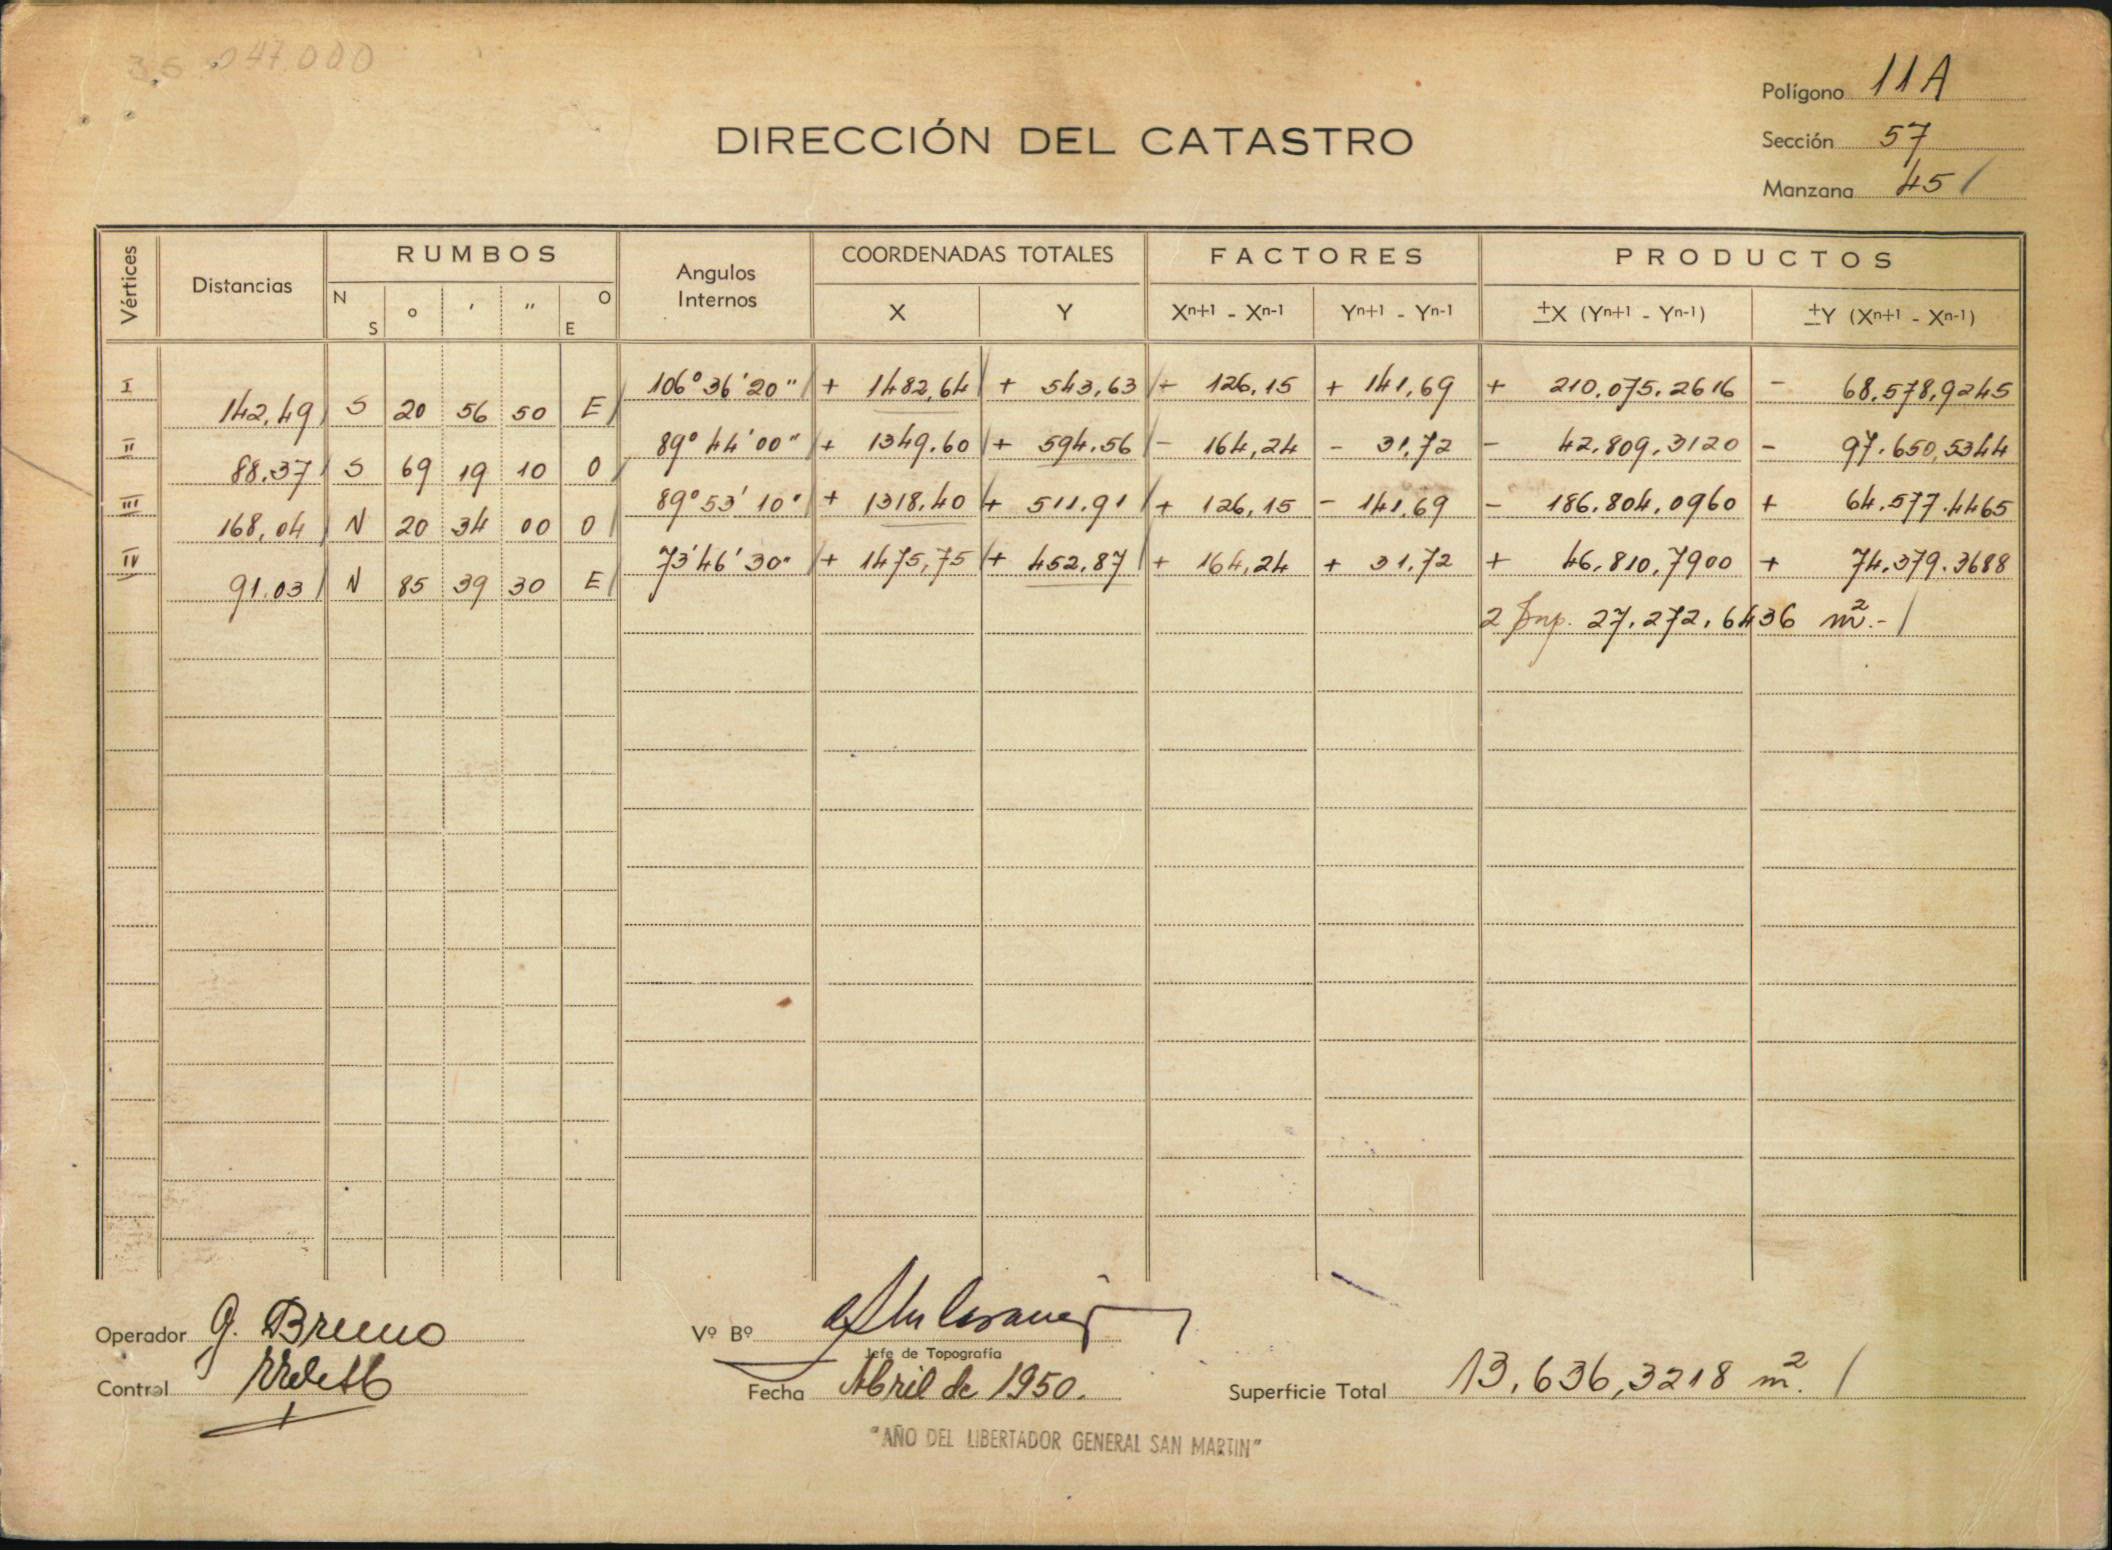 35.047.000
Polígono 11A
DIRECCIÓN DEL CATASTRO
Sección 57
Manzana 45 /
Vértices Distancias RUMBOS Angulos Internos COORDENADAS TOTALES FACTORES PRODUCTOS
N S o ' " O E X Y Xn+1 - Xn-1 Yn+1 - Yn-1 ±X (Yn+1 - Yn-1) ±Y (Xn+1 - Xn-1)
I 106° 36' 20" / + 1482,64 / + 543,63 / - 126,15 + 141,69 + 210.075.2616 - 68.578,9245
142,49 / S 20 56 50 E /
II 89° 44' 00" / + 1349.60 / + 594.56 / - 164,24 - 31,72 - 42.809.3120 - 97.650,5344
88.37 / S 69 19 10 O /
III 89° 53' 10" / + 1318,40 / + 511.91 / + 126,15 - 141.69 - 186.804.0960 + 64.577.4465
168,04 / N 20 34 00 O /
IV 73° 46' 30" / + 1475,75 / + 452,87 / + 164,24 + 31,72 + 46.810,7900 + 74.379.3688
91.03 / N 85 39 30 E /
2 Sup. 27.272,6436 m². - /
Operador G. Bruno
Vº Bº
Jefe de Topografía
Control
Fecha Abril de 1950.
Superficie Total 13.636,3218 m². /
"AÑO DEL LIBERTADOR GENERAL SAN MARTIN"